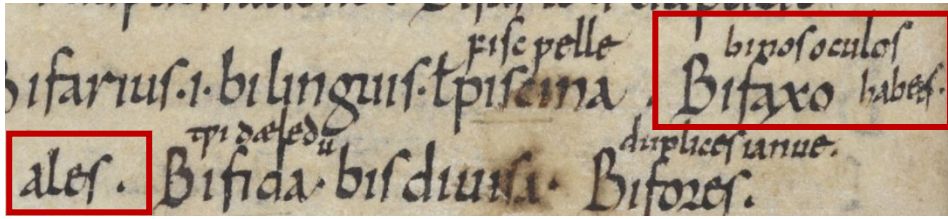 fisc pelle binos oculos
ifarius ·i· bilinguis · ł piscina . Bifaxo habes ·
tƿi dæledu duplices ianue .
ales . Bifida · bis diuisa · Bifores .